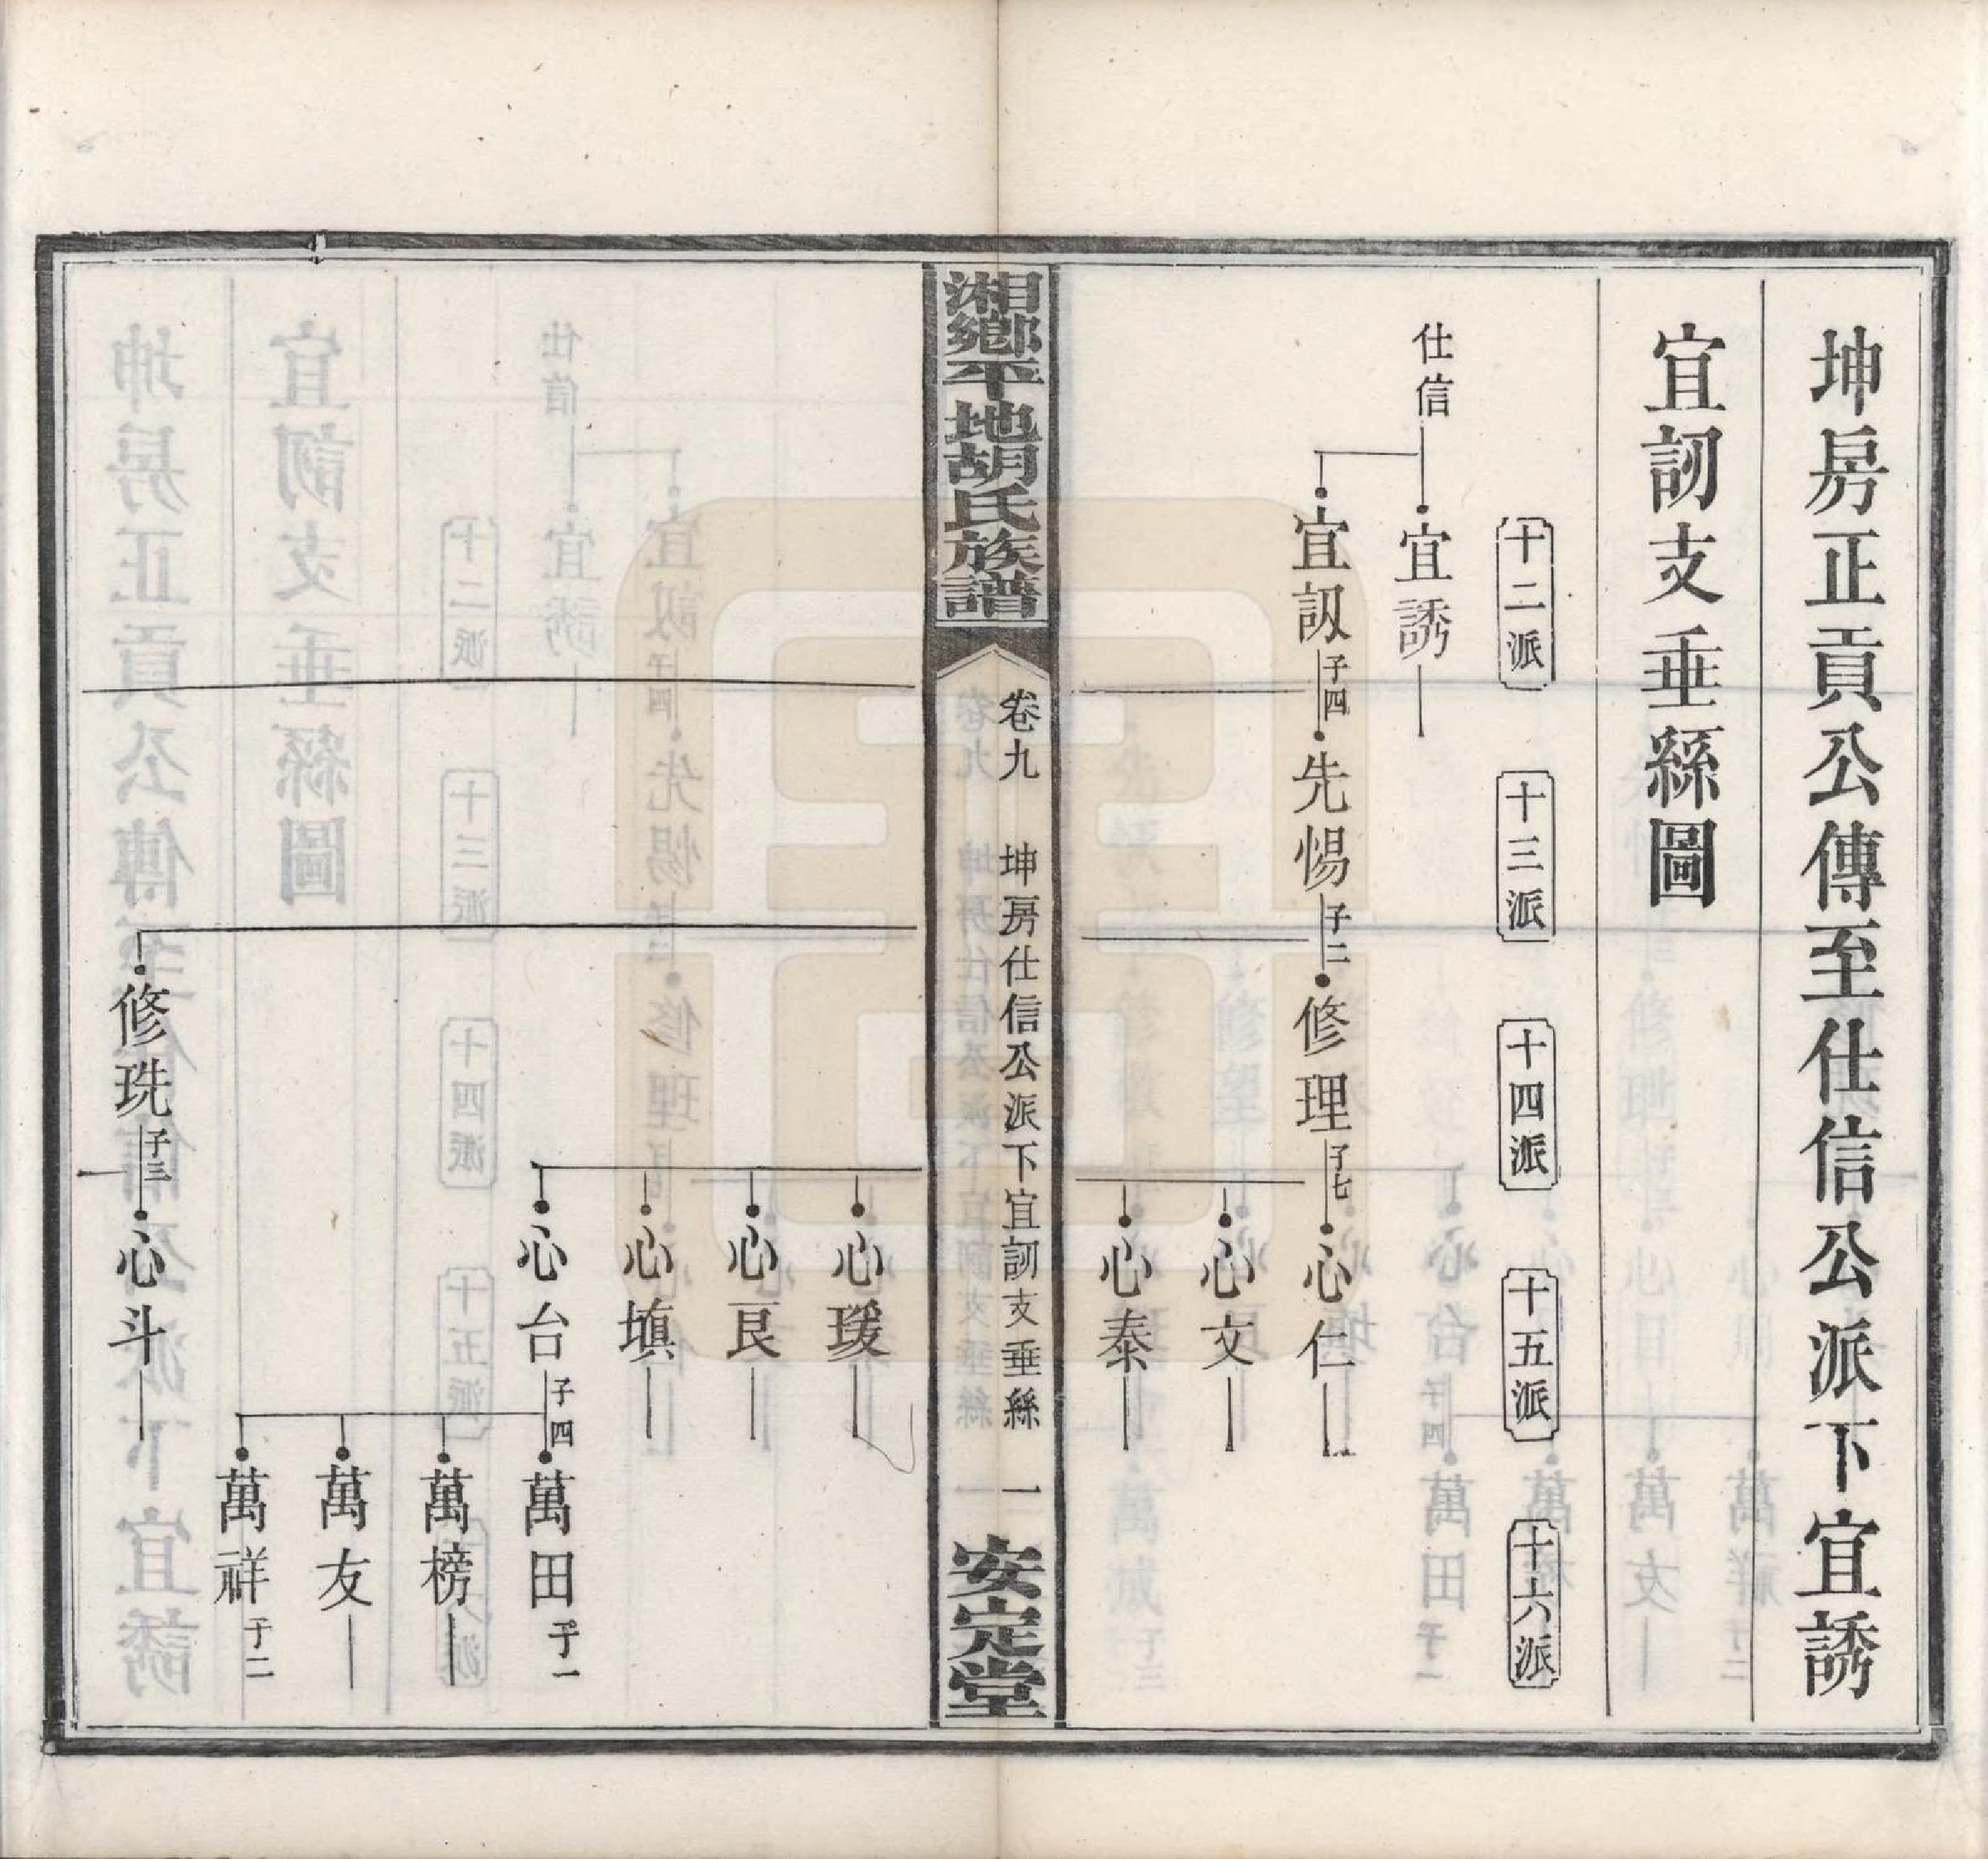 坤房正貢公傳至仕信公派下宜誘
宜訒支垂絲圖
十二派
十三派
十四派
十五派
十六派
仕信
宜誘
宜訒 子四
先惕 子二
修理 子七
心仁
心文
心泰
湘鄉平地胡氏族譜
卷九 坤房仕信公派下宜訒支垂絲 一
安定堂
心瑗
心艮
心塡
心台 子四
萬田 子一
萬榜
萬友
萬祥 子二
修珗 子三
心斗